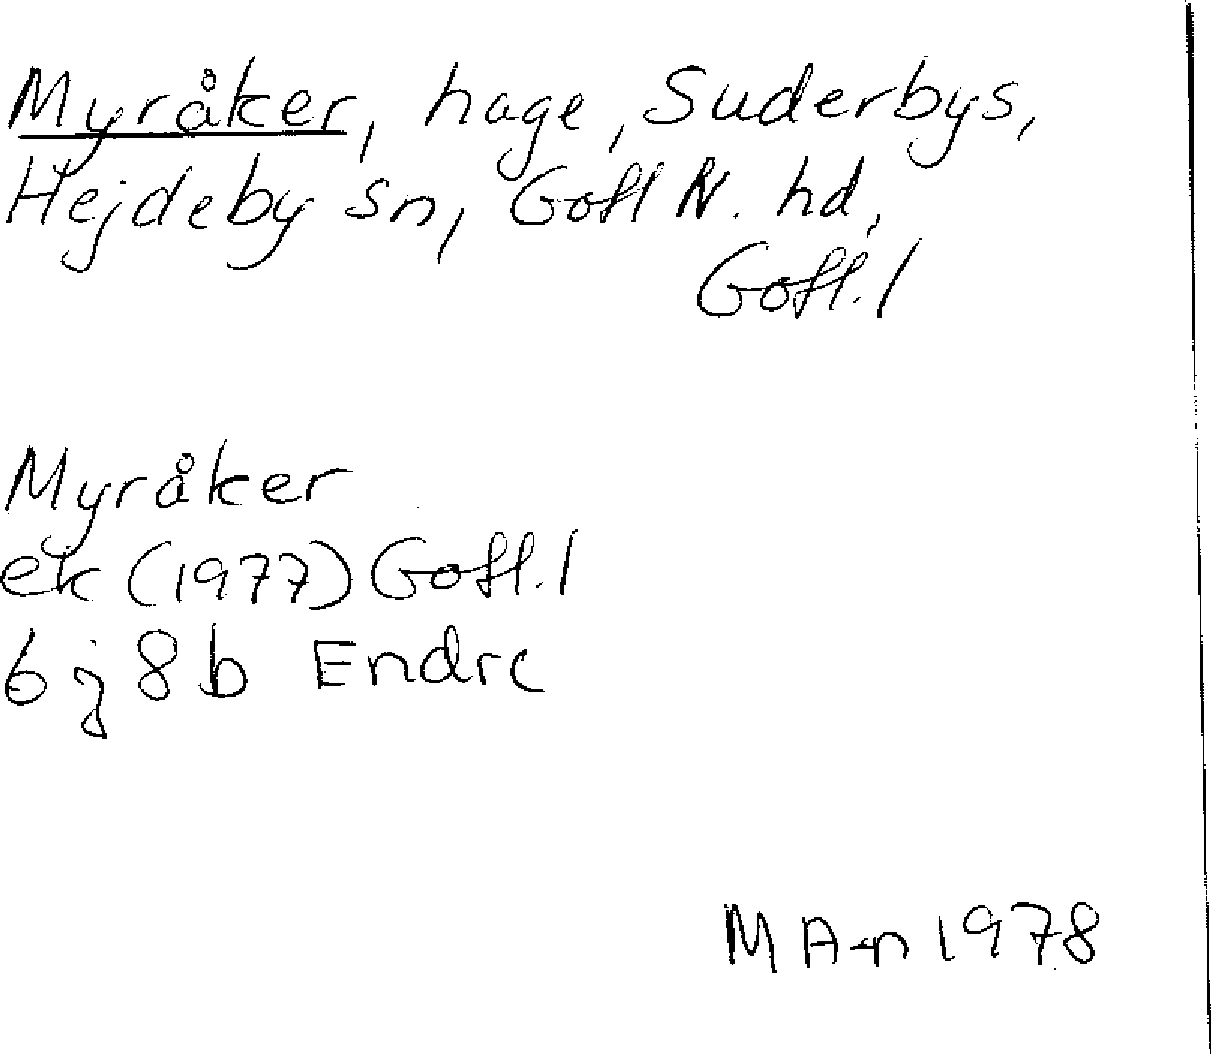 Myråker, hage, Suderbys,
Hejdeby sn, Gotl N. hd,
Gotl. l
Myråker
ek (1977) Gotl. l
6 j 8 b Endre
M A-n 1978